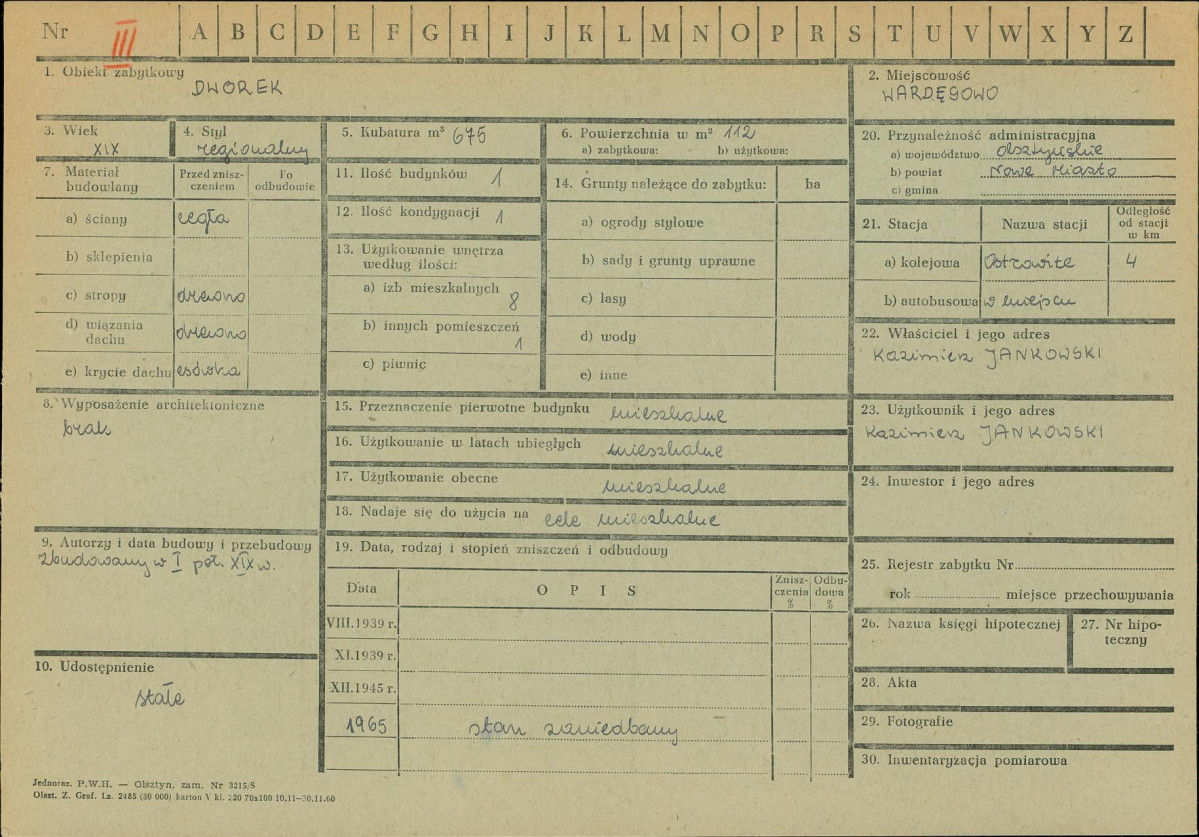 Nr III A B C D E F G H I J K L M N O P R S T U V W X Y Z
1. Obiekt zabytkowy
DWOREK
2. Miejscowość
WARDĘGOWO
3. Wiek
XIX
4. Styl
regionalny
5. Kubatura m³ 675
6. Powierzchnia w m² 112
a) zabytkowa: b) użytkowa:
7. Materiał budowlany
Przed zniszczeniem
Po odbudowie
a) ściany cegła
b) sklepienia
c) stropy drewno
d) wiązania dachu drewno
e) krycie dachu esówka
8. Wyposażenie architektoniczne
brak
9. Autorzy i data budowy i przebudowy
zbudowany w I poł. XIX w.
10. Udostępnienie
stałe
11. Ilość budynków 1
12. Ilość kondygnacji 1
13. Użytkowanie wnętrza
według ilości:
a) izb mieszkalnych
8
b) innych pomieszczeń
1
c) piwnic
14. Grunty należące do zabytku: ha
a) ogrody stylowe
b) sady i grunty uprawne
c) lasy
d) wody
e) inne
15. Przeznaczenie pierwotne budynku mieszkalne
16. Użytkowanie w latach ubiegłych mieszkalne
17. Użytkowanie obecne mieszkalne
18. Nadaje się do użycia na cele mieszkalne
19. Data, rodzaj i stopień zniszczeń i odbudowy
Data O P I S Zniszczenia % Odbudowa %
VIII.1939 r.
XI.1939 r.
XII.1945 r.
1965 stan zaniedbany
20. Przynależność administracyjna
a) województwo olsztyńskie
b) powiat Nowe Miasto
c) gmina
21. Stacja Nazwa stacji Odległość od stacji w km
a) kolejowa Ostrowite 4
b) autobusowa w miejscu
22. Właściciel i jego adres
Kazimierz JANKOWSKI
23. Użytkownik i jego adres
Kazimierz JANKOWSKI
24. Inwestor i jego adres
25. Rejestr zabytku Nr
rok miejsce przechowywania
26. Nazwa księgi hipotecznej
27. Nr hipoteczny
28. Akta
29. Fotografie
30. Inwentaryzacja pomiarowa
Jednoraz. P.W.H. — Olsztyn, zam. Nr 3215/S
Olszt. Z. Graf. Lz. 2485 (30 000) karton V kl. 220 70x100 10.11—30.11.60